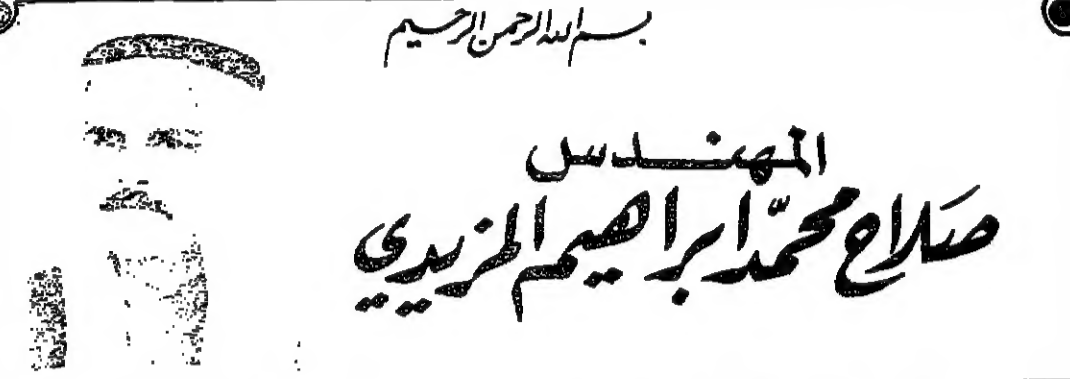 بسم الله الرحمن الرحيم
المهندس
صلاح محمّد ابراهيم المزيدي